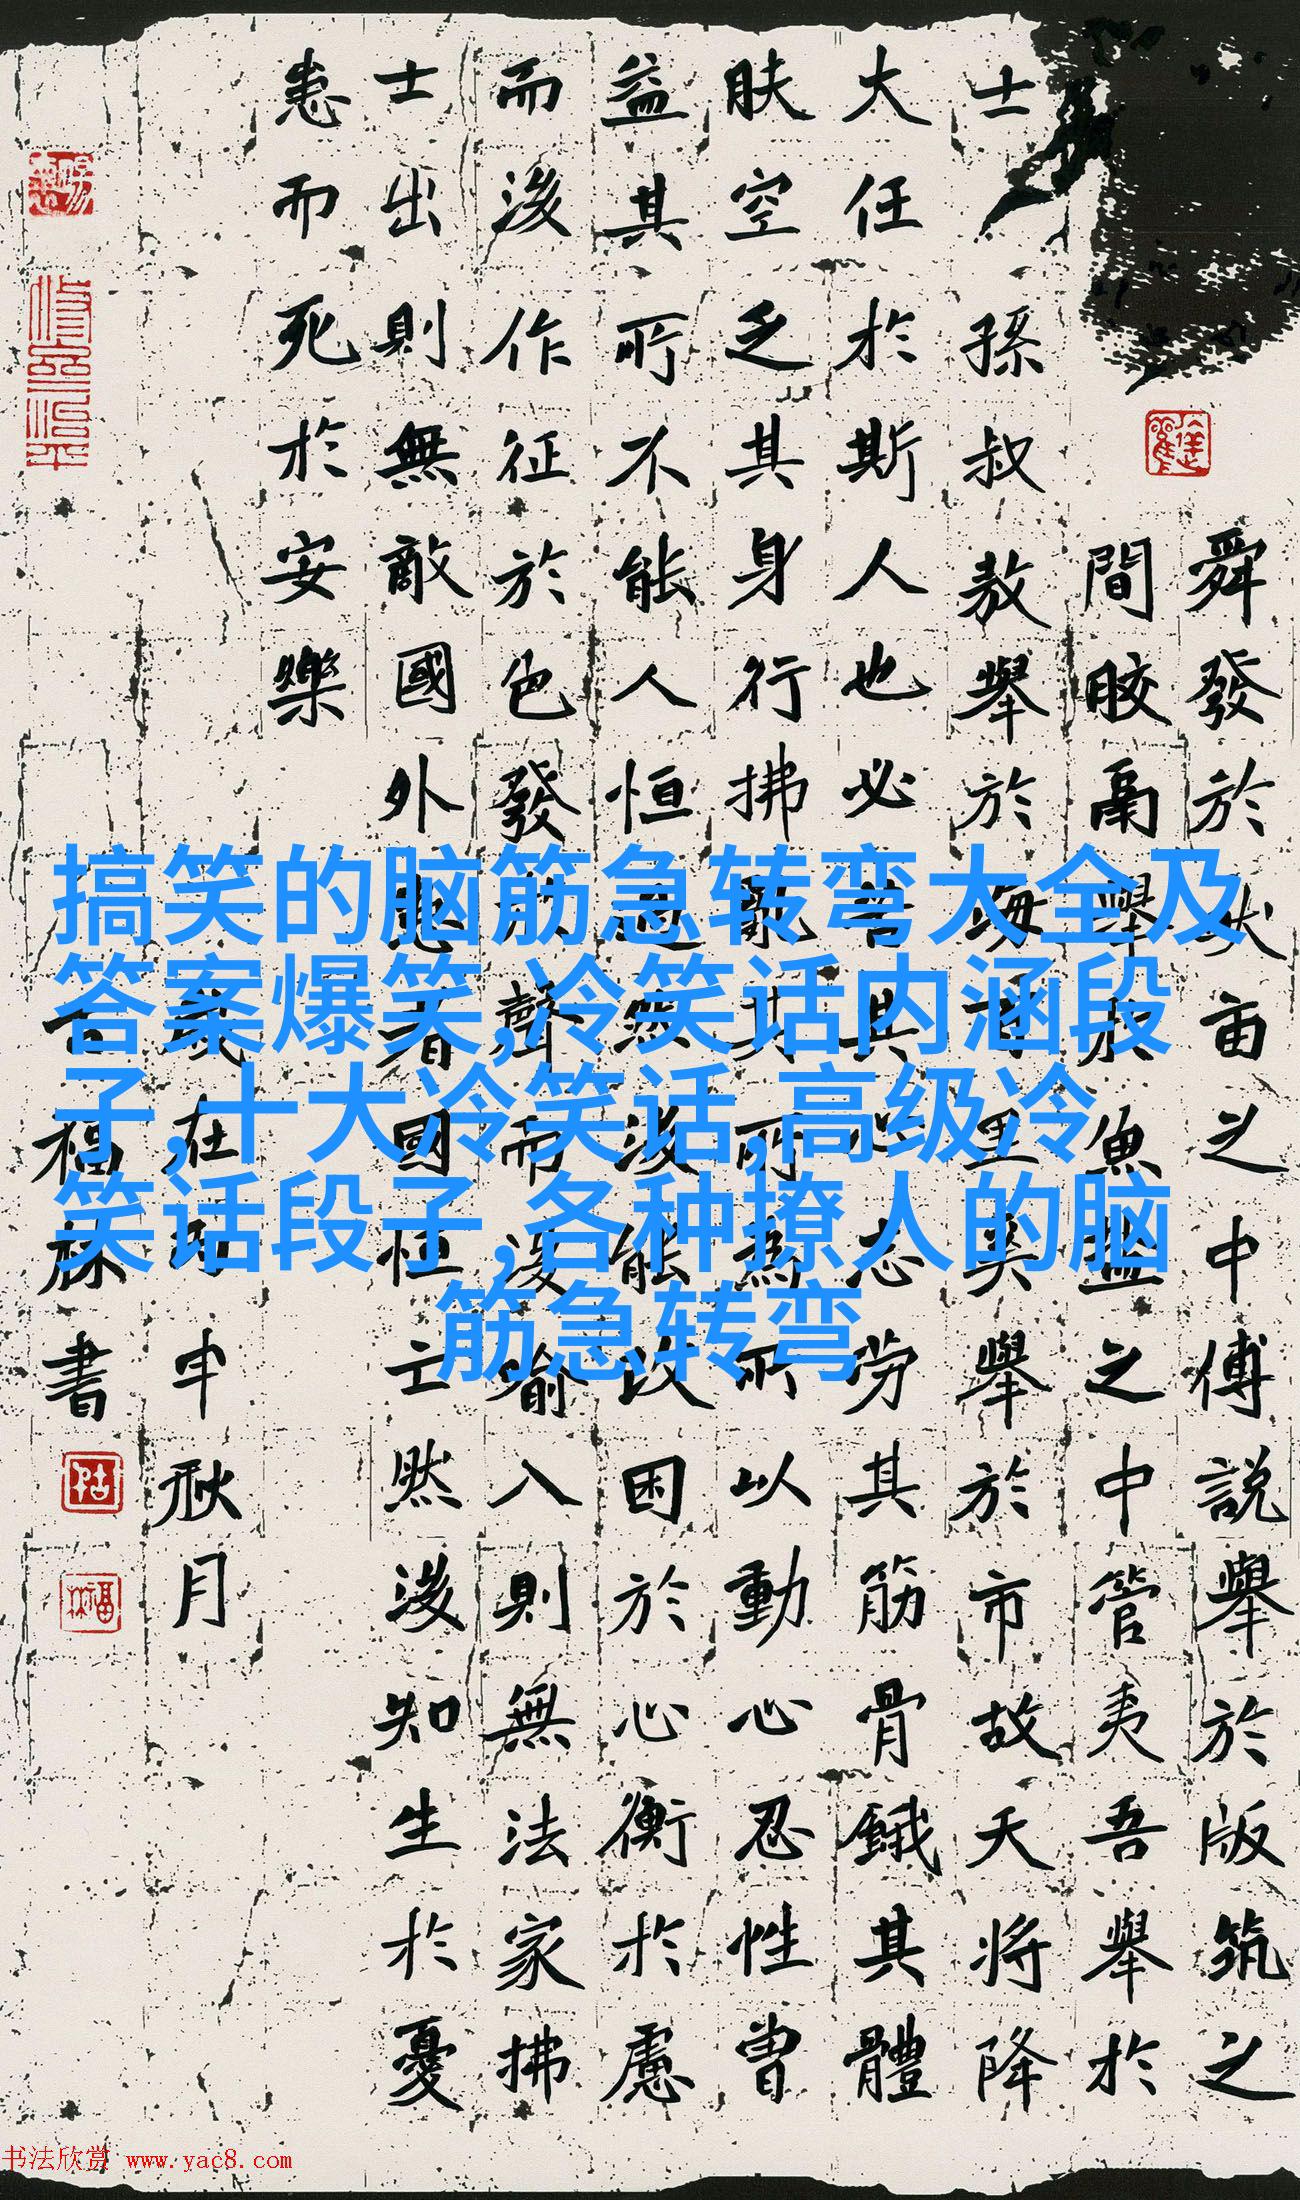 舜發於畎亩之中傅説舉於版筑之
間膠鬲舉於魚盐之中管夷吾舉於
士孫叔敖舉於海百里奚舉於市故天將降
大任於斯人也必苦其心志劳其筋骨餓其體
肤空乏其身行拂亂其所為所以動心忍性曾
益其所不能人恒過然後能改困於心衡於慮
而後作征於色發於聲而後喻入則無法家拂
士出則無敵國外患者國恒亡然後知生於憂
患而死於安樂
歲在丙申秋月
福林書
搞笑的脑筋急转弯大全及
答案爆笑,冷笑话内涵段
子,十大冷笑话,高级冷
笑话段子,各种撩人的脑
筋急转弯
书法欣赏 www.yac8.com